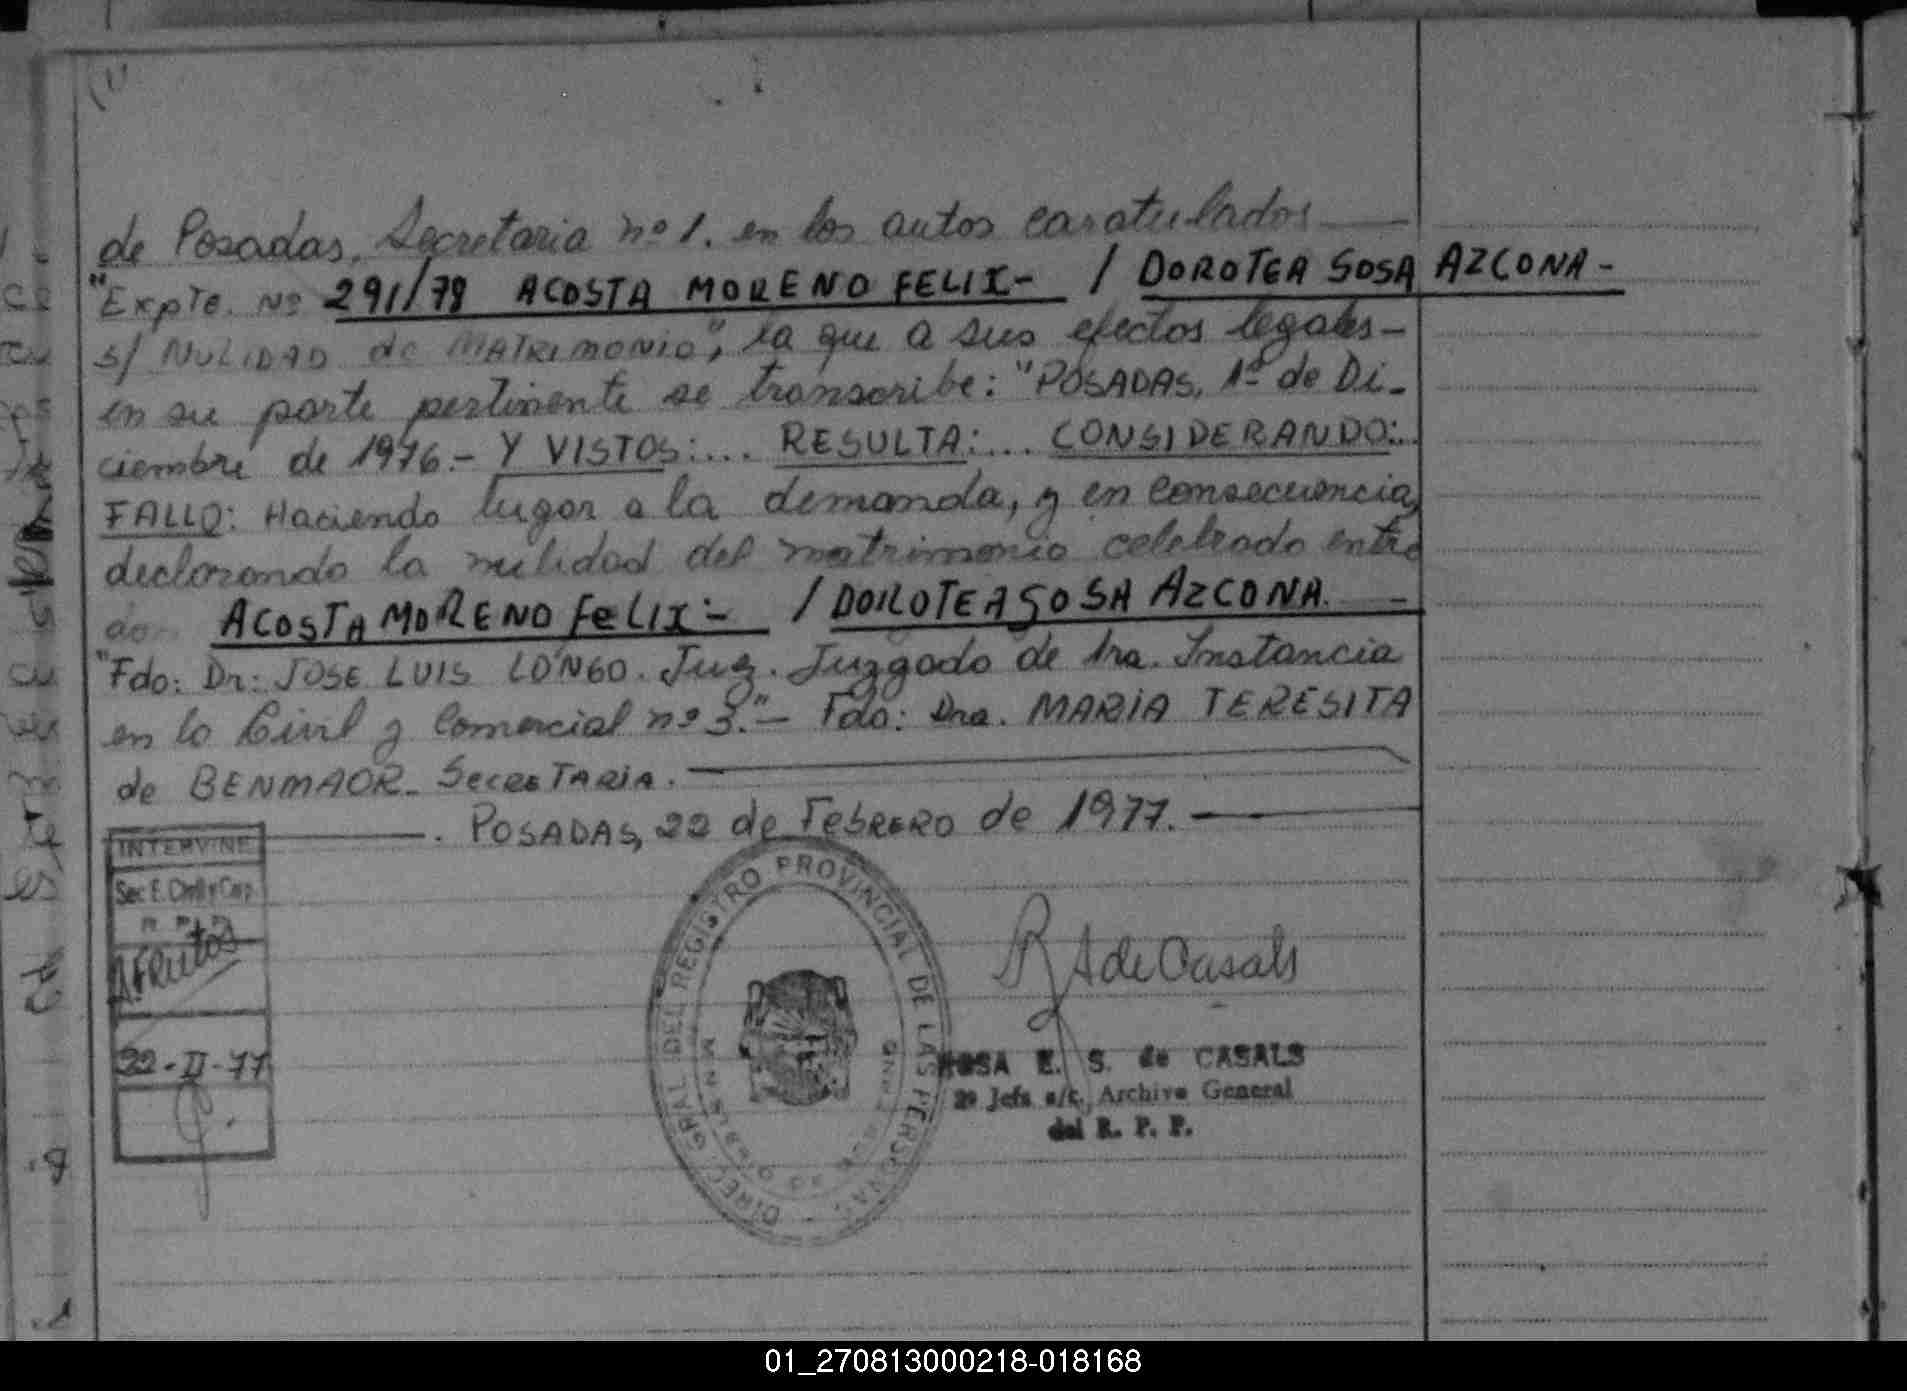 de Posadas, Secretaria nº 1. en los autos caratulados
"Expte. Nº 291/78 ACOSTA MORENO FELIX- / DOROTEA SOSA AZCONA-
s/ NULIDAD de MATRIMONIO", la que a sus efectos legales-
en su parte pertinente se transcribe: "POSADAS, 1º de Di-
ciembre de 1976.- Y VISTOS:... RESULTA:... CONSIDERANDO:..
FALLO: Haciendo lugar a la demanda, y en consecuencia,
declarando la nulidad del matrimonio celebrado entre
don ACOSTA MORENO FeLIX:- / DOROTEA SOSA AZCONA. -
"Fdo: Dr: JOSE LUIS LONGO. Juez. Juzgado de 1ra. Instancia
en lo Civil y Comercial nº 3."- Fdo: Dra. MARIA TERESITA
de BENMAOR- SecreTARIA.
POSADAS, 22 de FebRERO de 1977.
INTERVINE
A. FRutos
22-II-77
DIREC. GRAL DEL REGISTRO PROVINCIAL DE LAS PERSONAS
R A de Casals
ROSA E. S. de CASALS
2º Jefe a/c. Archivo General
del R. P. P.
01_270813000218-018168